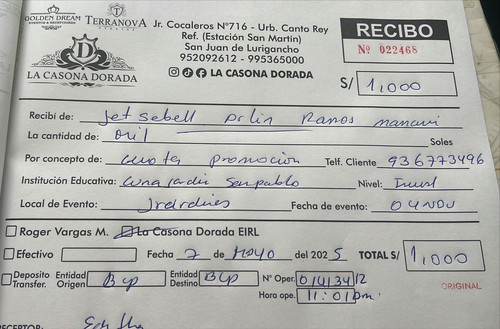 GOLDEN DREAM
EVENTOS & RECEPCIONES
TERRANOVA
EVENTOS
LA CASONA DORADA
Jr. Cocaleros N°716 - Urb. Canto Rey
Ref. (Estación San Martín)
San Juan de Lurigancho
952092612 - 995365000
LA CASONA DORADA
RECIBO
Nº 022468
S/ 1,000
Recibí de: Jet sebell Arlin Ramos mamani
La cantidad de: mil Soles
Por concepto de: cuota promocion Telf. Cliente 936773496
Institución Educativa: cuna jardin san pablo Nivel:
Local de Evento: Jardines Fecha de evento: 04 NOV
Roger Vargas M. La Casona Dorada EIRL
Efectivo Fecha 7 de Mayo del 2025 TOTAL S/ 1,000
Deposito Transfer. Entidad Origen Bcp Entidad Destino BCP N° Oper. 0/4/34/12
Hora ope. 11:01 pm
ORIGINAL
RECEPTOR: